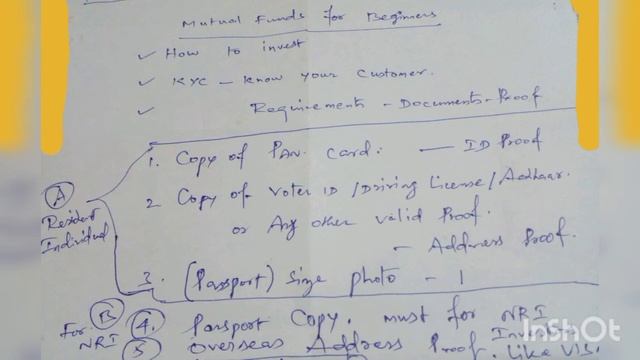 Mutual Funds for Beginners
✓ How to invest
✓ KYC - Know your Customer.
✓ Requirements - Documents - Proof
1. Copy of PAN. Card: — ID Proof
(A) Resident Individual
2 Copy of Voter ID / Driving License / Aadhaar.
or Any other valid Proof.
- Address Proof.
3. (Passport) Size photo - 1
For NRI (B) (4.) Passport Copy. must for NRI
(5) Overseas Address Proof. Like
InShot